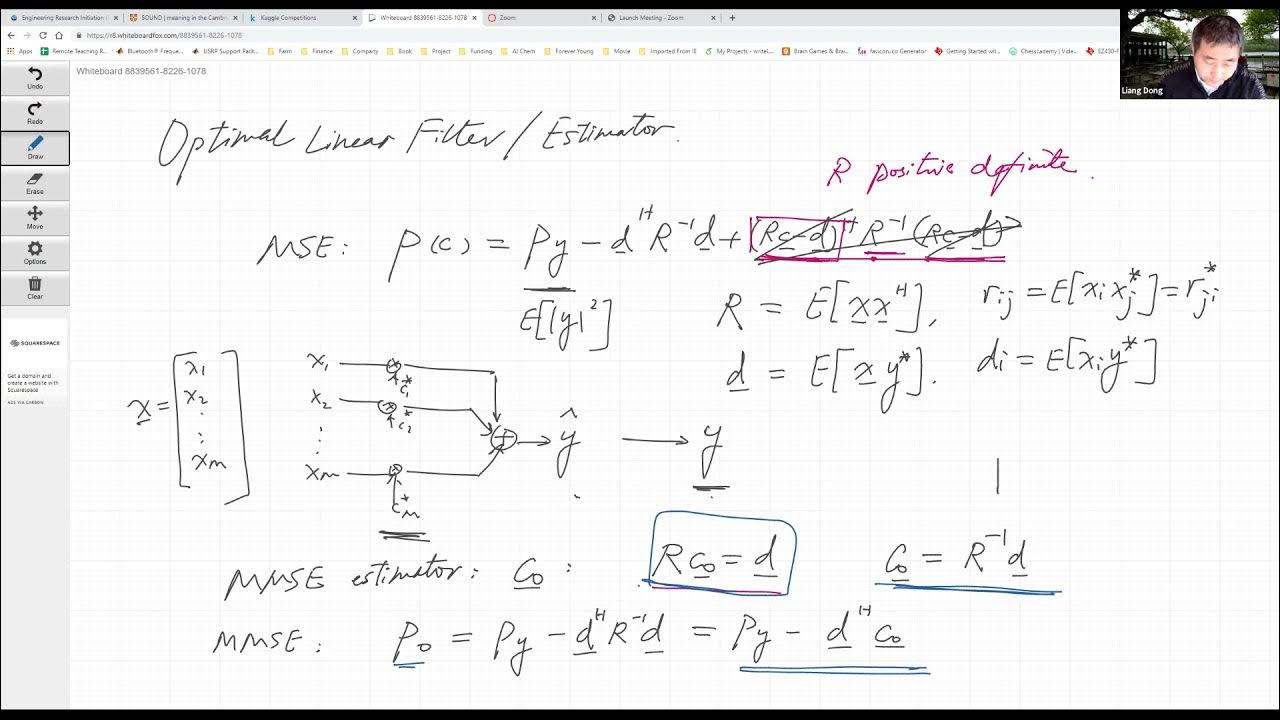 Engineering Research Initiation (
SOUND | meaning in the Camb
Kaggle Competitions
Whiteboard 8839561-8226-1078
Zoom
Launch Meeting - Zoom
https://r8.whiteboardfox.com/8839561-8226-1078
Apps
Remote Teaching R...
Bluetooth® Freque...
USRP Support Pack...
Farm
Finance
Company
Book
Project
Funding
AI Chem
Forever Young
Movie
Imported From IE
My Projects - writeL...
Brain Games & Brai...
favicon.ico Generator
Getting Started wit...
Chessacademy | Vide...
EZ430-F
Liang Dong
Whiteboard 8839561-8226-1078
Undo
Redo
Draw
Erase
Move
Options
Clear
SQUARESPACE
Get a domain and
create a website with
Squarespace
ADS VIA CARBON
Optimal Linear Filter / Estimator.
R positive definite.
MSE: P(c) = Py - d^H R^-1 d + (Rc - d)^H R^-1 (Rc - d)
E[|y|^2]
R = E[x x^H], rij = E[xi xj*] = rji*
d = E[x y*]. di = E[xi y*]
x = [x1 x2 ⋮ xm]
x1 c1*
x2 c2*
⋮
xm cM*
+ → ŷ → y
MMSE estimator: c0: R c0 = d c0 = R^-1 d
MMSE: P0 = Py - d^H R^-1 d = Py - d^H c0